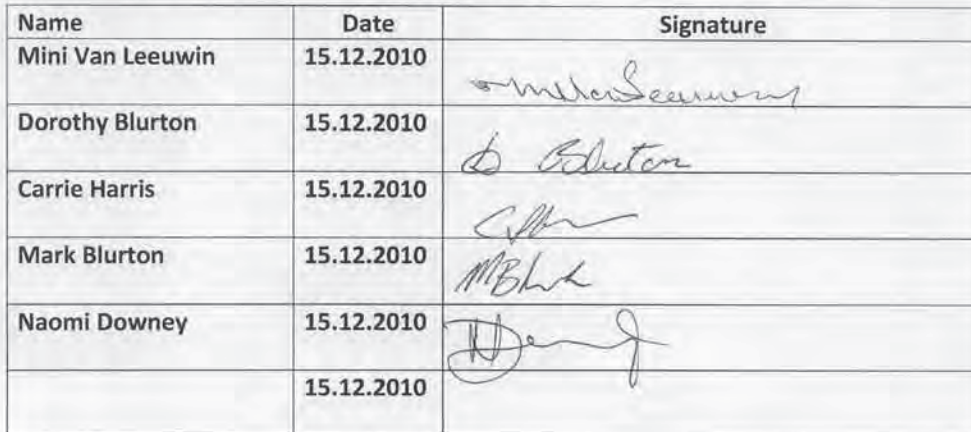 Name Date Signature
Mini Van Leeuwin 15.12.2010
Dorothy Blurton 15.12.2010 D Blurton
Carrie Harris 15.12.2010
Mark Blurton 15.12.2010
Naomi Downey 15.12.2010
15.12.2010